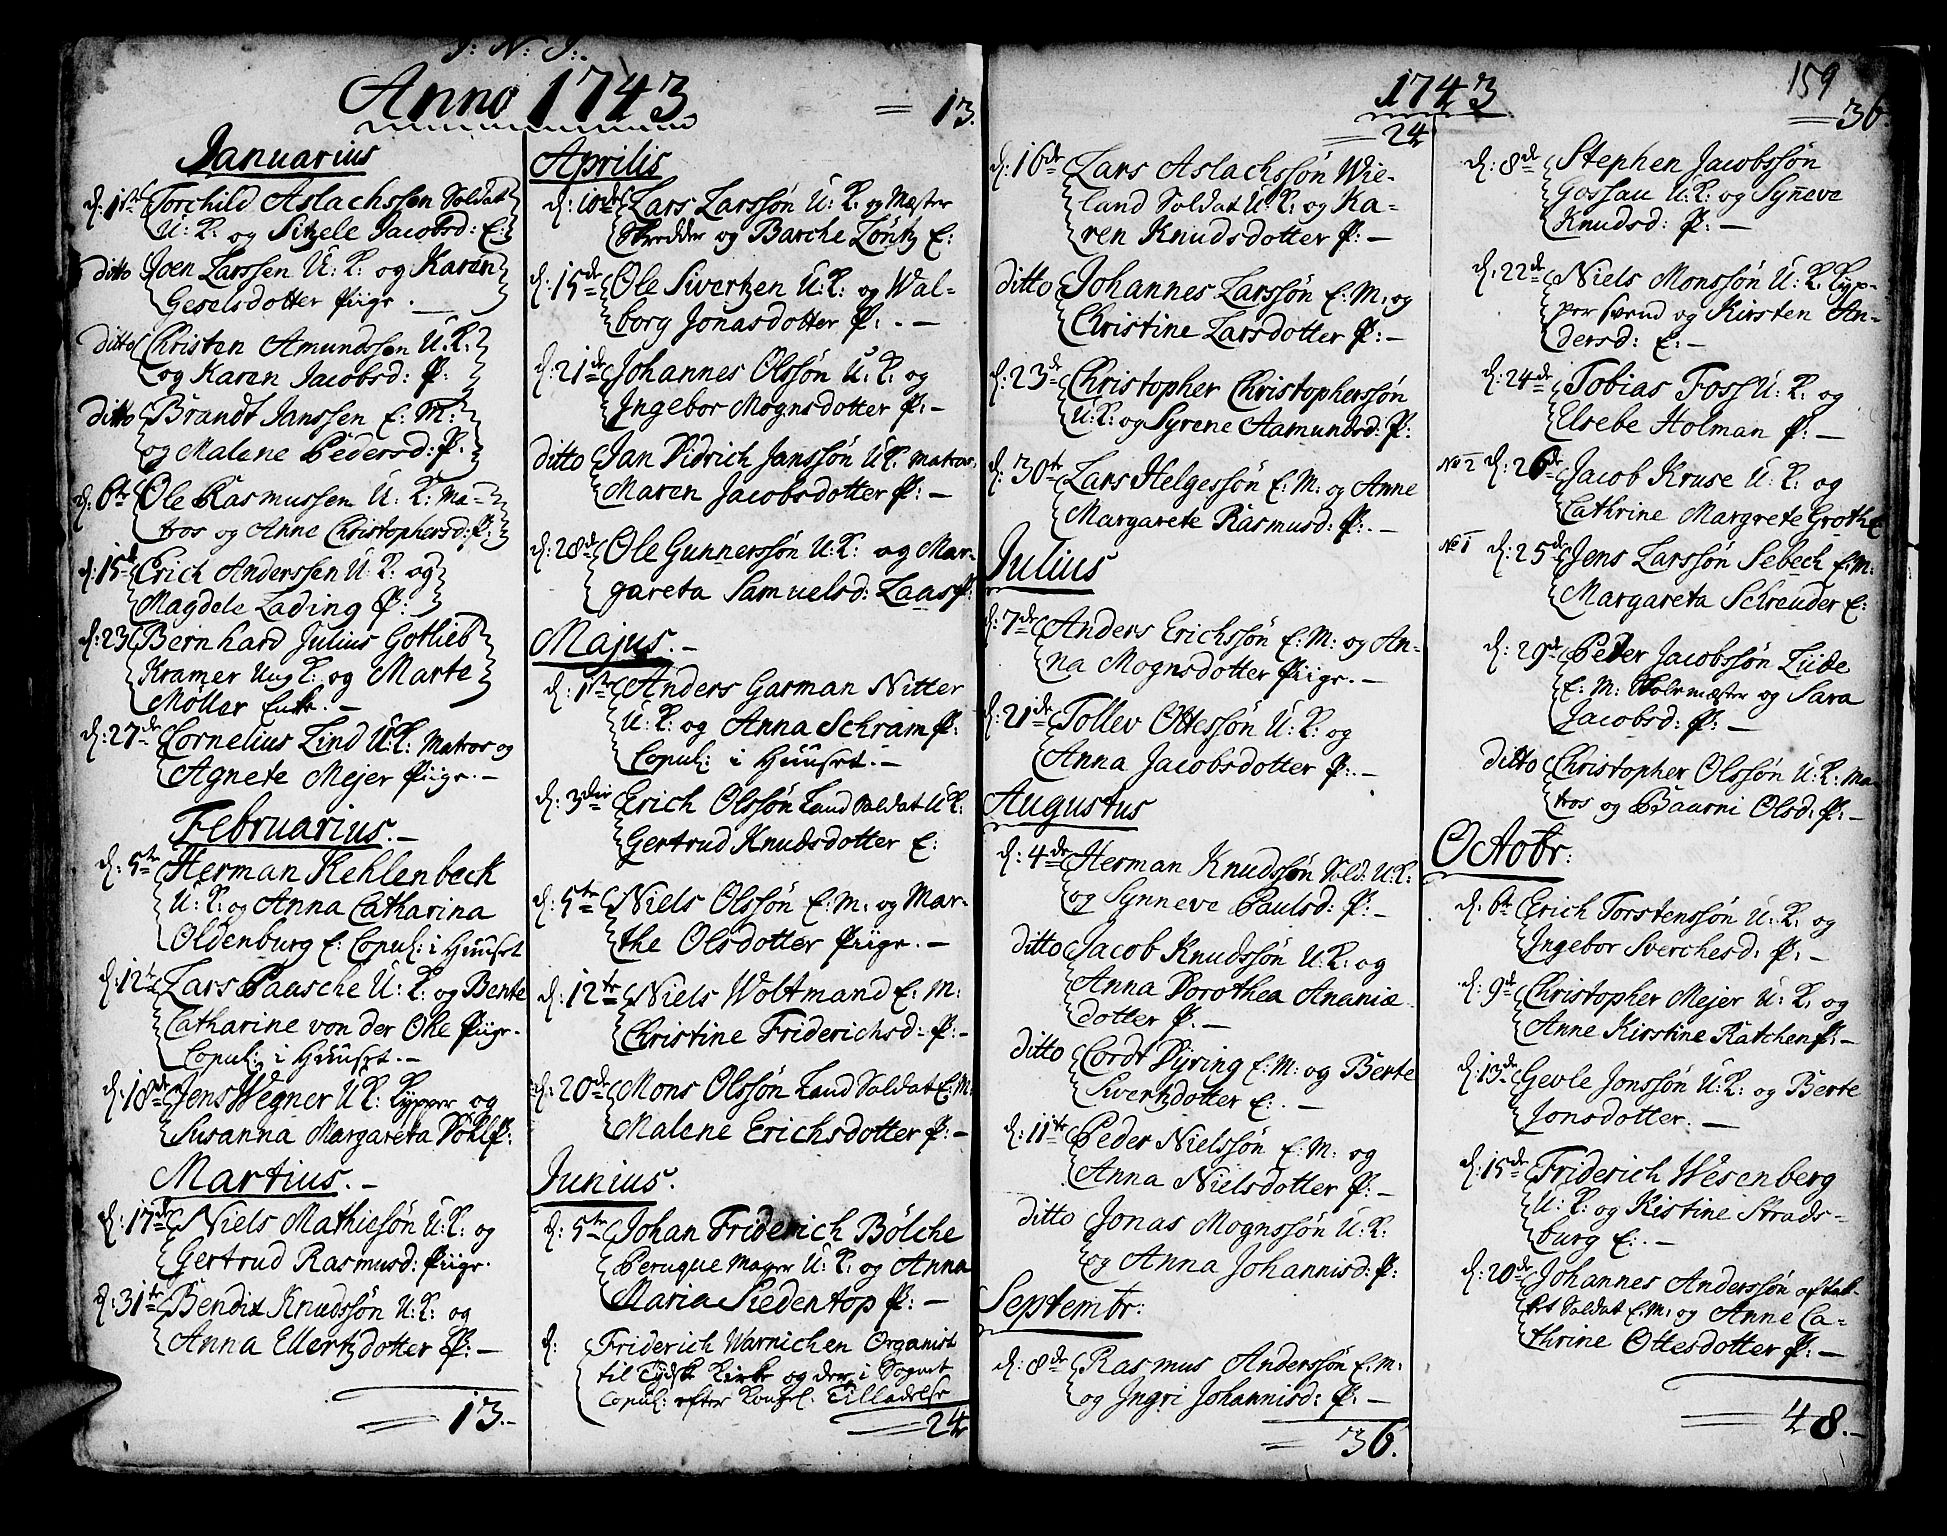 J: N: J:
Anno 1743
= 13.
Januarius
d. 1ste Torchild Aslachssen Soldat
U: K. og Sitzele Jacobsd: E:
ditto Joen Larssen U: K: og Karen
Geselsdotter Piigr.
ditto Christen Amundssen U: K:
og Karen Jacobsd: P:
ditto Brandt Janssen E: M:
og Malene Pedersd: P:
d: 6te Ole Rasmussen U: K: Ma-
tros og Anne Christophersd: P:
d: 15de Erich Anderssen U: K: og
Magdele Lading P:
d: 23 Bernhard Julius Gotlieb
Kramer Ung K: og Marte
Möller Enke. -
d: 27de Cornelius Lind U: K: Matros og
Agnete Mejer Piigr. -
Februarius. -
d: 5te Herman Kehlenbeck
U: K: og Anna Catharina
Oldenburg E: Copul: i Huuset
d: 12te Lars Paasche U: K: og Bente
Catharine von der Ohe Piigr.
Copul: i Huuset. -
d: 18de Jens Wegner U: K: Kypper og
Susanna Margareta Döhl P:
Martius. -
d: 17de Niels Mathiesön U: K: og
Gertrud Rasmusd: Piigr.
d: 31te Bendix Knudssön U: K: og
Anna Ellertzdotter P: -
= 13. -
Aprilis
d: 10de Lars Larssön U: K: og Mæster
Skredder og Barche Löntz E:
d: 15de Ole Sivertzen U: K: og Wal-
borg Jonasdotter P: . -
d: 21de Johannes Olssön U: K: og
Ingebor Mognsdotter P: -
ditto Jan Didrich Janssön U: K: Matros,
Maren Jacobsdotter P: -
d: 28de Ole Gunnerssön U: K: og Mar-
gareta Samuelsd: Laas P:
Majus. -
d: 1ste Anders Garman Nitter
U: K: og Anna Schram P:
Copul: i Huuset. -
d: 3die Erich Olssön Land Soldat U: K:
Gertrud Knudsdotter E:
d: 5te Niels Olssön E: M: og Mar-
the Olsdotter Piigr. -
d: 12te Niels Woltmand E: M:
Christine Friderichsd: P: -
d: 20de Mons Olssön Land Soldat E: M:
Malene Erichsdotter P: -
Junius.
d: 5te Johan Friderich Bölche
Peruque Mager U: K: og Anna
Maria Siedentop P: -
d: Friderich Warnichen Organist
til Tydske Kirke og der i Sognet
Copul: efter Kongel: Tilladelse
= 24
1743
= 24
d: 16de Lars Aslachssön Wie-
land Soldat U: K: og Ka-
ren Knudsdotter P: -
ditto Johannes Larssön E: M: og
Christine Larsdotter P: -
d: 23de Christopher Christopherssön
U: K: og Syrene Aamundsd: P:
d: 30te Lars Helgessön E: M: og Anne
Margarete Rasmusd: P: . -
Julius
d: 7de Anders Erichssön E: M: og An-
na Mognsdotter Piigr. -
d: 21de Tollev Ottessön U: K: og
Anna Jacobsdotter P: . -
Augustus
d: 4de Herman Knudssön Sold: U: K:
og Synneve Paulsd: P: -
ditto Jacob Knudssön U: K: og
Anna Dorothea Ananiæ
dotter P. -
ditto Cordt Dyring E: M: og Berte
Sivertzdotter E: . -
d: 11te Peder Nielssön E: M: og
Anna Nielsdotter P: -
ditto Jonas Mognssön U: K:
og Anna Johannisd: P:
Septembr:
d: 8de Rasmus Anderssön E: M:
og Ingri Johannisd: P: -
= 36.
159
= 36.
d: 8de Stephen Jacobssön
Gossau U: K: og Syneve
Knudsd: P: -
d: 22de Niels Monssön U: K: Kyp-
per svend og Kirsten An-
dersd: E: -
d: 24de Tobias Foss U: K: og
Elsebe Holman P: -
No 2 d: 26de Jacob Kruse U: K: og
Cathrine Margrete Groth E
No 1 d: 25de Jens Larssön Sebech E: M:
Margareta Schreuder E:
d: 29de Peder Jacobssön Lüde
E: M: Skolemæster og Sara
Jacobsd: P: -
ditto Christopher Olssön U: K: Ma-
tros og Baarni Olsd: P: -
Octobr:
d: 6te Erich Torstenssön U: K: og
Ingebor Sverchesd: P: -
d: 9de Christopher Mejer U: K: og
Anne Kirstine Ratchen P: -
d: 13de Gevle Jonssön U: K: og Berte
Jonsdotter. -
d: 15de Friderich Wesenberg
U: K: og Kistine Strads-
burg E: . -
d: 20de Johannes Anderssön aftak-
ket Soldat E: M: og Anne Ca-
thrine Ottesdotter P: -
= 48. -